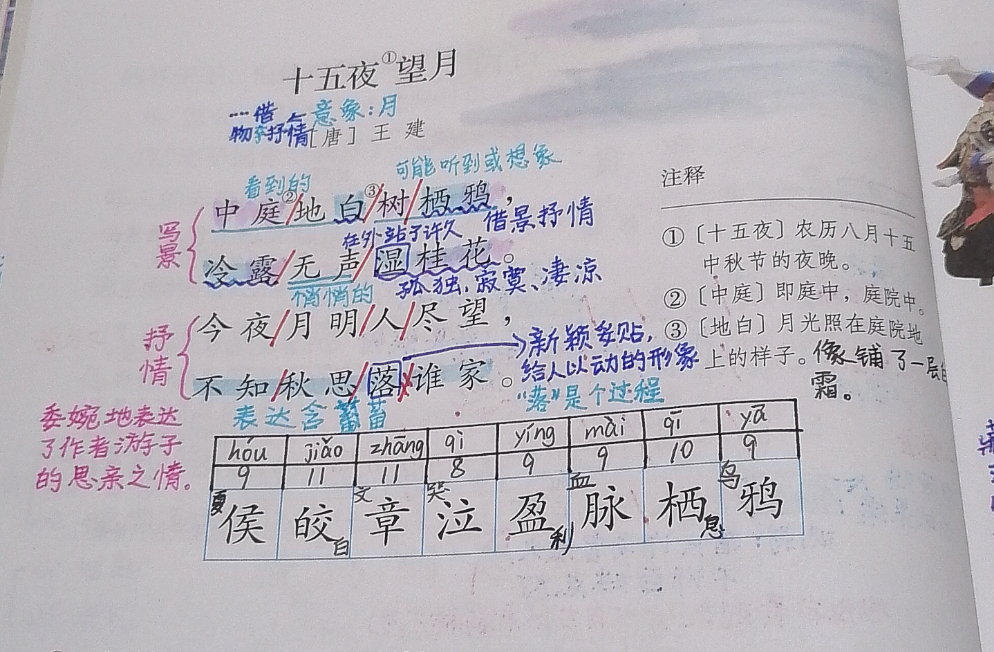 十五夜①望月
…借
意象:月
物抒情
[唐] 王 建
看到的
可能听到或想象
中庭②地白③树栖鸦,
写景
在外站了许久
借景抒情
冷露无声湿桂花。
悄悄的
孤独、寂寞、凄凉
今夜月明人尽望,
抒情
不知秋思落谁家。
新颖妥贴,
给人以动的形象
“落”是个过程
表达含蓄
委婉地表达
了作者游子
的思亲之情。
注释
①〔十五夜〕农历八月十五
中秋节的夜晚。
②〔中庭〕即庭中,庭院中。
③〔地白〕月光照在庭院地
上的样子。像铺了一层白
霜。
hóu jiǎo zhāng qì yíng mài qī yā
9 11 11 8 9 9 10 9
侯 皎 章 泣 盈 脉 栖 鸦
夏 白 文 哭 利 血 息 乌